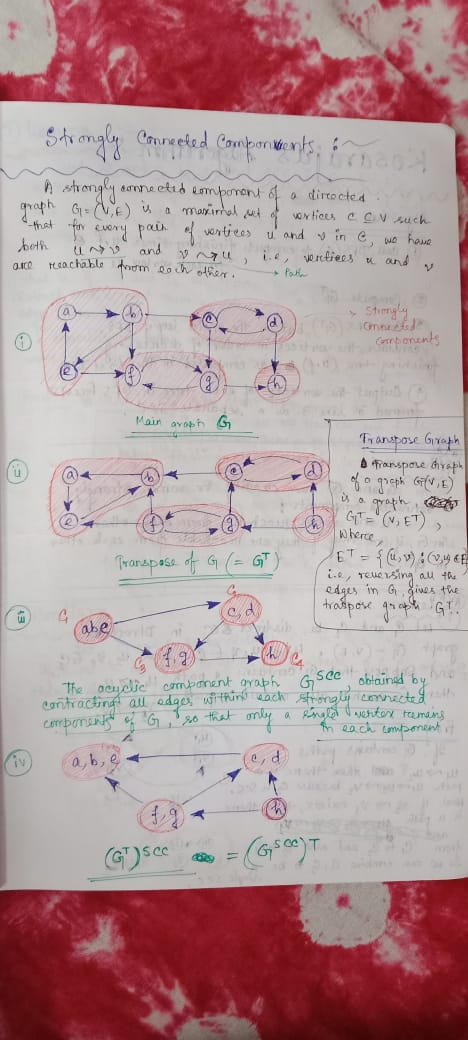 Strongly Connected Components :-
A strongly connected component of a directed
graph G=(V,E) is a maximal set of vertices C ⊆ V such
that for every pair of vertices u and v in C, we have
both u ⤳ v and v ⤳ u, i.e, vertices u and v
are reachable from each other. → Path
i
a b c d
e f g h
→ Strongly
Connected
Components
Main graph G
ii
a b c d
e f g h
Transpose of G (= G^T)
Transpose Graph
A transpose graph
of a graph G(V,E)
is a graph
G^T = (V, ET),
Where,
E^T = {(u,v) : (v,u) ∈ E
i.e, reversing all the
edges in G, gives the
traspose graph G^T.
iii
C1 abe
c,d
C3 f,g
h C4
The acyclic component graph G^SCC obtained by
contracting all edges within each strongly connected
components of G, so that only a single vertex remans
in each component
iv
a, b, e
c, d
f, g
h
(G^T)^SCC = (G^SCC)^T